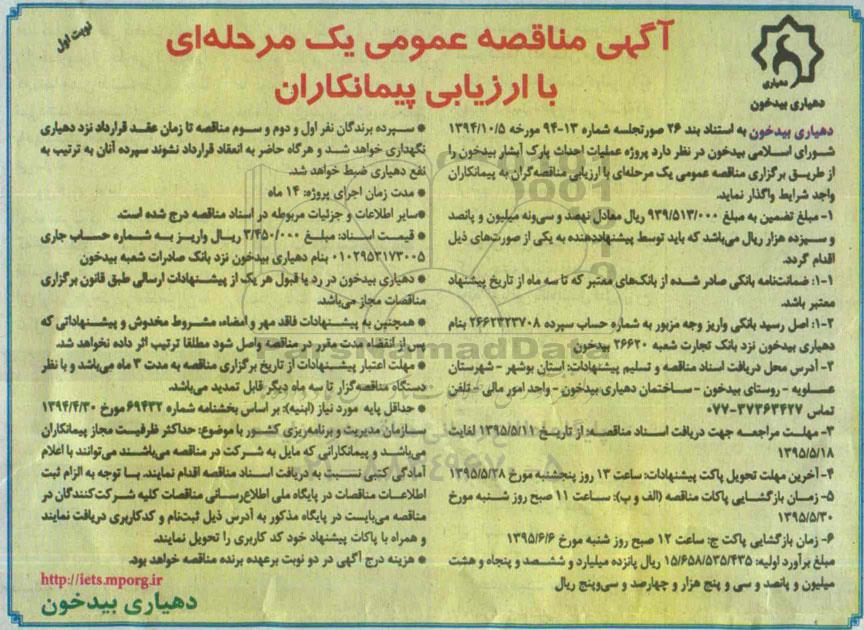 نوبت اول
آگهی مناقصه عمومی یک مرحله‌ای
با ارزیابی پیمانکاران
دهیاری
دهیاری بیدخون
دهیاری بیدخون به استناد بند ۲۶ صورتجلسه شماره ۱۳-۹۴ مورخه ۱۳۹۴/۱۰/۵
شورای اسلامی بیدخون در نظر دارد پروژه عملیات احداث پارک آبشار بیدخون را
از طریق برگزاری مناقصه عمومی یک مرحله‌ای با ارزیابی مناقصه‌گران به پیمانکاران
واجد شرایط واگذار نماید.
۱- مبلغ تضمین به مبلغ ۹۳۹/۵۱۳/۰۰۰ ریال معادل نهصد و سی‌ونه میلیون و پانصد
و سیزده هزار ریال می‌باشد که باید توسط پیشنهاددهنده به یکی از صورت‌های ذیل
اقدام گردد.
۱-۱: ضمانت‌نامه بانکی صادر شده از بانک‌های معتبر که تا سه ماه از تاریخ پیشنهاد
معتبر باشد.
۱-۲: اصل رسید بانکی واریز وجه مزبور به شماره حساب سپرده ۲۶۶۲۳۲۳۷۰۸ بنام
دهیاری بیدخون نزد بانک تجارت شعبه ۲۶۶۲۰ بیدخون
۲- آدرس محل دریافت اسناد مناقصه و تسلیم پیشنهادات: استان بوشهر - شهرستان
عسلویه - روستای بیدخون - ساختمان دهیاری بیدخون - واحد امور مالی - تلفن
تماس ۳۷۳۶۳۴۲۷-۰۷۷
۳- مهلت مراجعه جهت دریافت اسناد مناقصه: از تاریخ ۱۳۹۵/۵/۱۱ لغایت
۱۳۹۵/۵/۱۸
۴- آخرین مهلت تحویل پاکت پیشنهادات: ساعت ۱۳ روز پنجشنبه مورخ ۱۳۹۵/۵/۲۸
۵- زمان بازگشایی پاکات مناقصه (الف و ب): ساعت ۱۱ صبح روز شنبه مورخ
۱۳۹۵/۵/۳۰
۶- زمان بازگشایی پاکت ج: ساعت ۱۲ صبح روز شنبه مورخ ۱۳۹۵/۶/۶
مبلغ برآورد اولیه: ۱۵/۶۵۸/۵۳۵/۴۳۵ ریال پانزده میلیارد و ششصد و پنجاه و هشت
میلیون و پانصد و سی و پنج هزار و چهارصد و سی‌وپنج ریال
● سپرده برندگان نفر اول و دوم و سوم مناقصه تا زمان عقد قرارداد نزد دهیاری
نگهداری خواهد شد و هرگاه حاضر به انعقاد قرارداد نشوند سپرده آنان به ترتیب به
نفع دهیاری ضبط خواهد شد.
● مدت زمان اجرای پروژه: ۱۴ ماه
●سایر اطلاعات و جزئیات مربوطه در اسناد مناقصه درج شده است.
● قیمت اسناد: مبلغ ۳/۴۵۰/۰۰۰ ریال واریز به شماره حساب جاری
۰۱۰۲۹۵۳۱۷۳۰۰۵ بنام دهیاری بیدخون نزد بانک صادرات شعبه بیدخون
● دهیاری بیدخون در رد یا قبول هر یک از پیشنهادات ارسالی طبق قانون برگزاری
مناقصات مجاز می‌باشد.
● همچنین به پیشنهادات فاقد مهر و امضاء، مشروط مخدوش و پیشنهاداتی که
پس از انقضاء مدت مقرر در مناقصه واصل شود مطلقا ترتیب اثر داده نخواهد شد.
● مهلت اعتبار پیشنهادات از تاریخ برگزاری مناقصه به مدت ۳ ماه می‌باشد و با نظر
دستگاه مناقصه‌گزار تا سه ماه دیگر قابل تمدید می‌باشد.
● حداقل پایه مورد نیاز (ابنیه): بر اساس بخشنامه شماره ۶۹۴۳۲ مورخ ۱۳۹۴/۴/۳۰
سازمان مدیریت و برنامه‌ریزی کشور با موضوع: حداکثر ظرفیت مجاز پیمانکاران
می‌باشد و پیمانکارانی که مایل به شرکت در مناقصه می‌باشند می‌توانند با اعلام
آمادگی کتبی نسبت به دریافت اسناد مناقصه اقدام نمایند. بـا توجه به الزام ثبت
اطلاعات مناقصات در پایگاه ملی اطلاع‌رسانی مناقصات کلیه شرکت‌کنندگان در
مناقصه می‌بایست در پایگاه مذکور به آدرس ذیل ثبت‌نام و کدکاربری دریافت نمایند
و همراه با پاکات پیشنهاد خود کد کاربری را تحویل نمایند.
● هزینه درج آگهی در دو نوبت برعهده برنده مناقصه خواهد بود.
http://iets.mporg.ir
دهیاری بیدخون
ParsNamadData